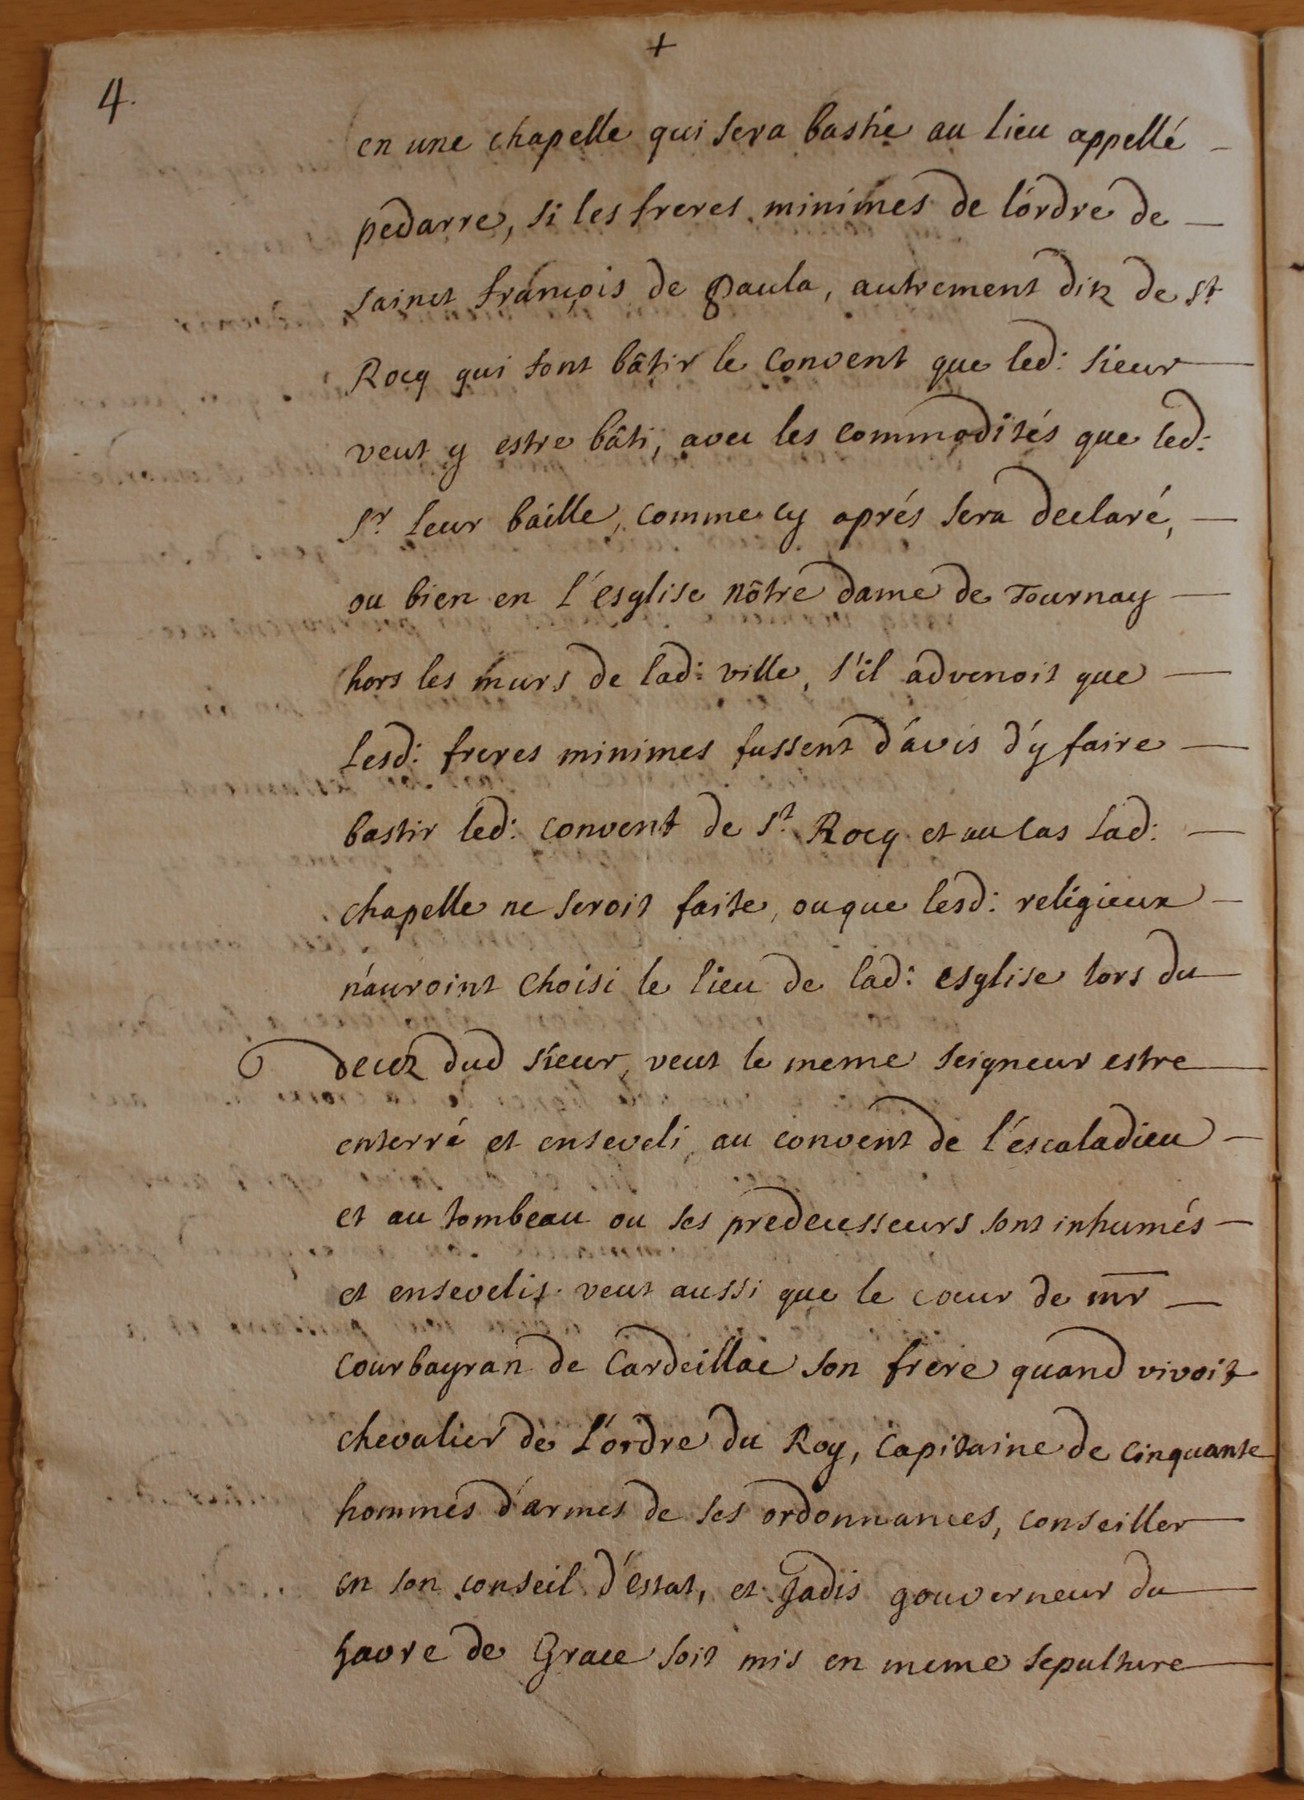 +
4.
en une chapelle qui sera bastie au lieu appellé
pedarre, si les freres minimes de l'ordre de
sainct françois de paula, autrement ditz de st
Rocq qui font bâtir le convent que led: sieur
veut y estre bâti, avec les commodités que led:
sr leur baille, comme cy aprés sera declaré,
ou bien en l'esglise nôtre dame de Tournay
hors les murs de lad: ville, s'il advenoit que
lesd: freres minimes fussent d'avis d'y faire
bastir led: convent de st Rocq et au cas lad:
chapelle ne seroit faite, ou que lesd: religieux
n'auroint choisi le lieu de lad: esglise lors du
decez dud sieur, veut le meme seigneur estre
enterré et enseveli au convent de l'escaladieu
et au tombeau ou ses predecesseurs sont inhumés
et ensevelis. veut aussi que le cœur de mr
courbayran de Cardeillac son frere quand vivoit
chevalier de l'ordre du Roy, Capitaine de cinquante
hommes d'armes de ses ordonnances, conseiller
en son conseil d'estat, et jadis gouverneur du
havre de Grace soit mis en meme sepulture